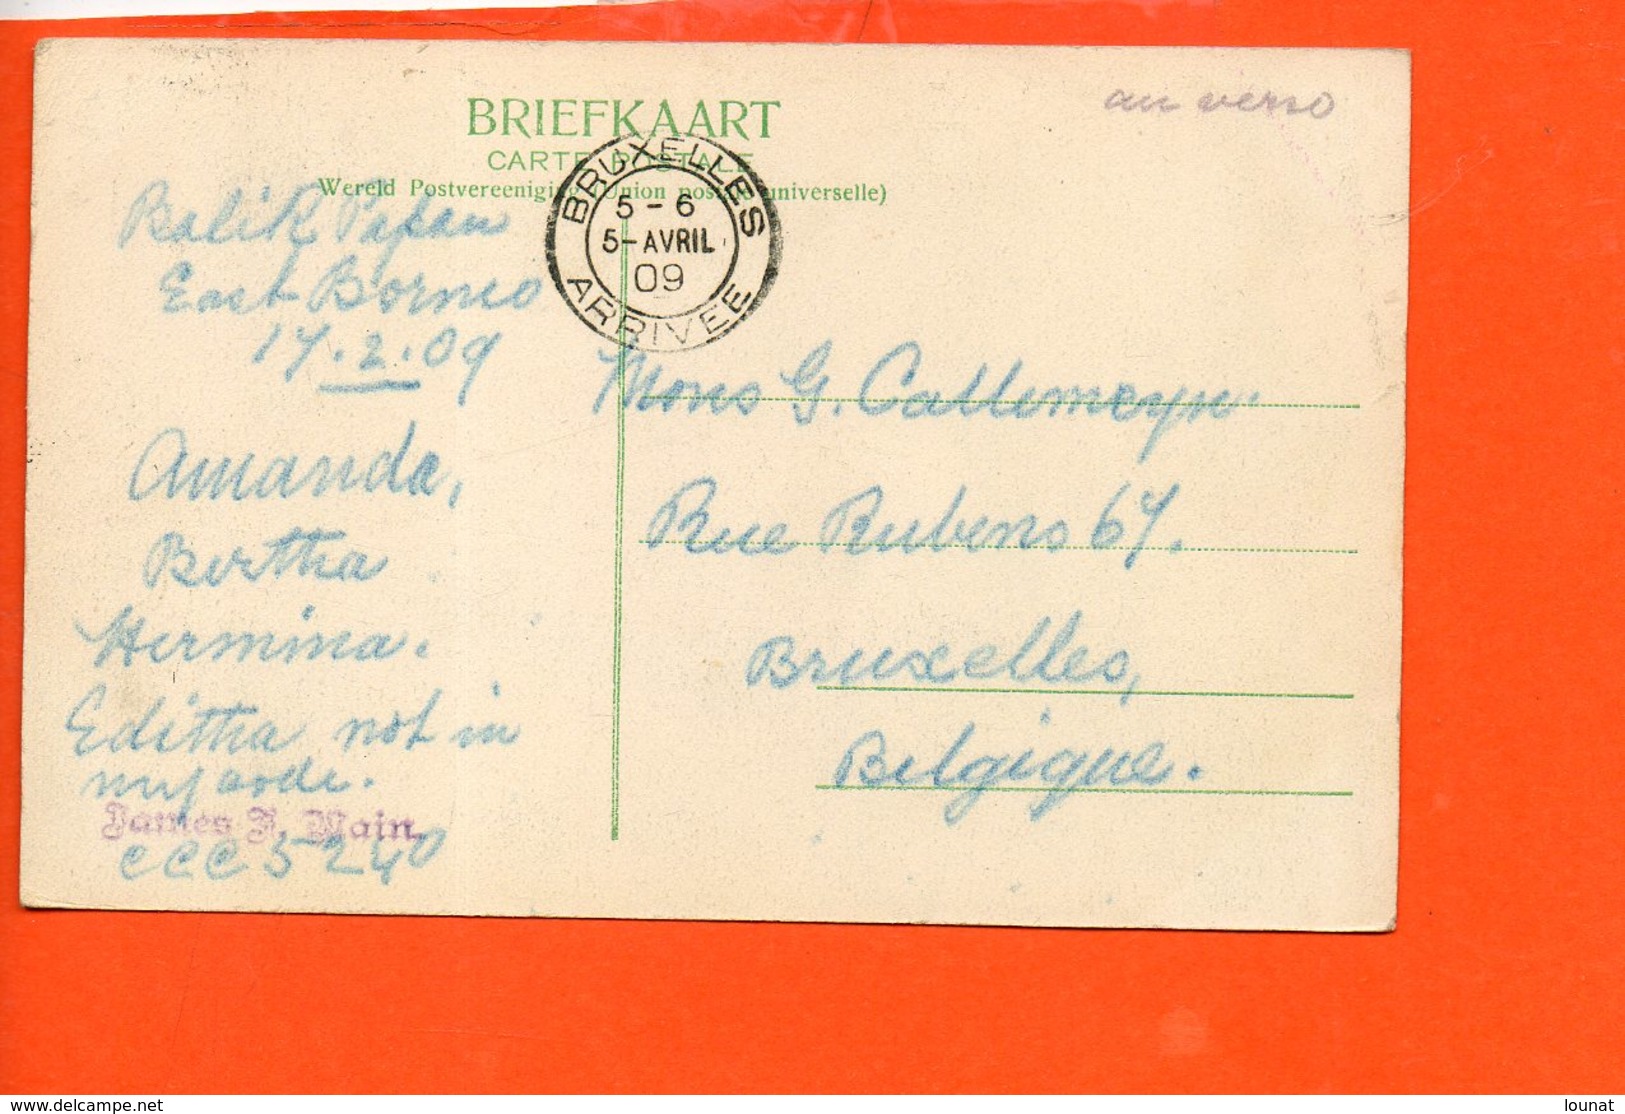 BRIEFKAART
CARTE POSTALE
Wereld Postvereeniging (Union postale universelle)
au verso
BRUXELLES
5-6
5-AVRIL
09
ARRIVEE
Balik Papan
East Borneo
17.2.09
Amanda,
Bertha
Hermina.
Editha not in
my code.
James F. Main.
CCC 5240
Mons G. Callemeyn.
Rue Rubens 67.
Bruxelles,
Belgique.
delcampe.net
lounat